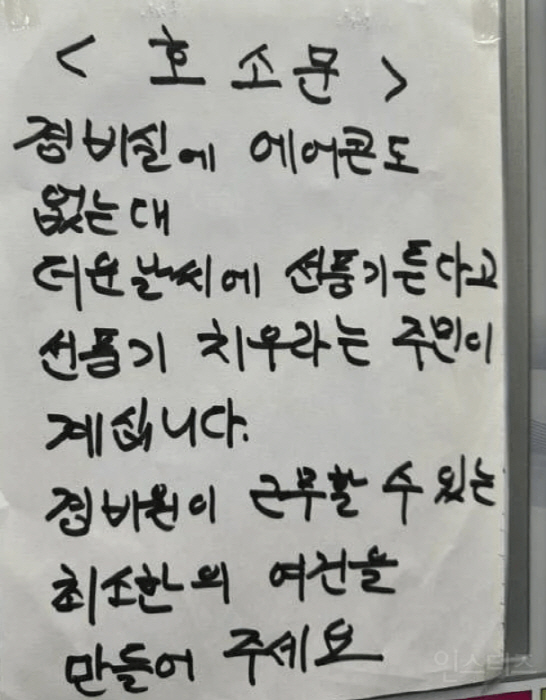 < 호소문 >
경비실에 에어콘도
없는대
더운날씨에 선풍기튼다고
선풍기 치우라는 주민이
계십니다.
경비원이 근무할 수 있는
최소한의 여건을
만들어 주세요
인스티즈